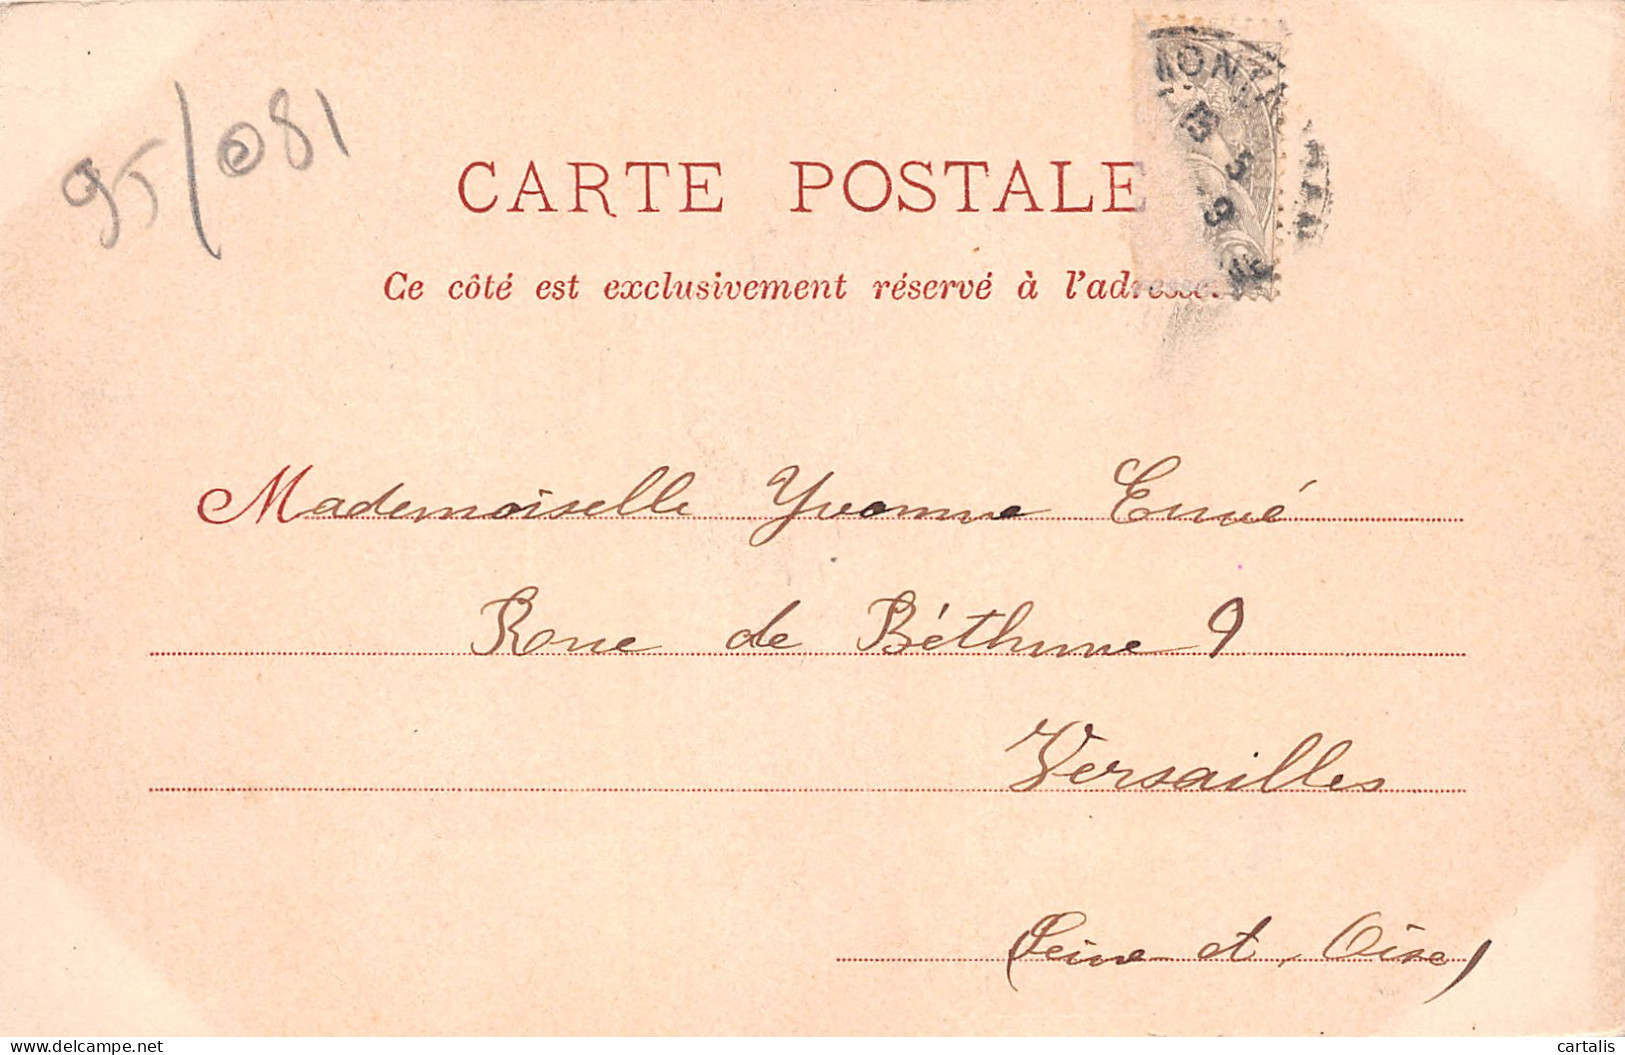 95/081
CARTE POSTALE
Ce côté est exclusivement réservé à l'adresse.
Mademoiselle Yvonne
Rue de Béthune 9
Versailles
(Seine et Oise)
cartalis